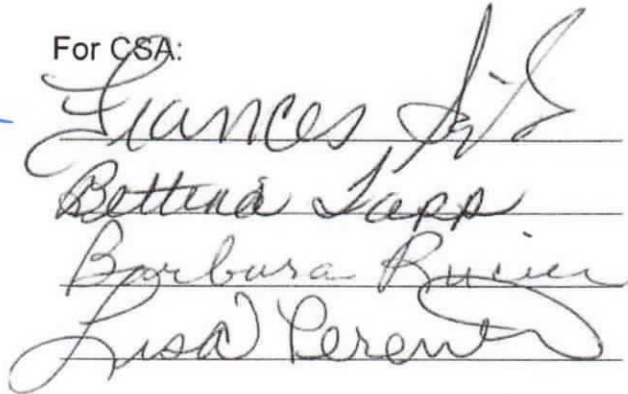 For CSA:
Frances
Bettina Tapp
Barbara
Lisa